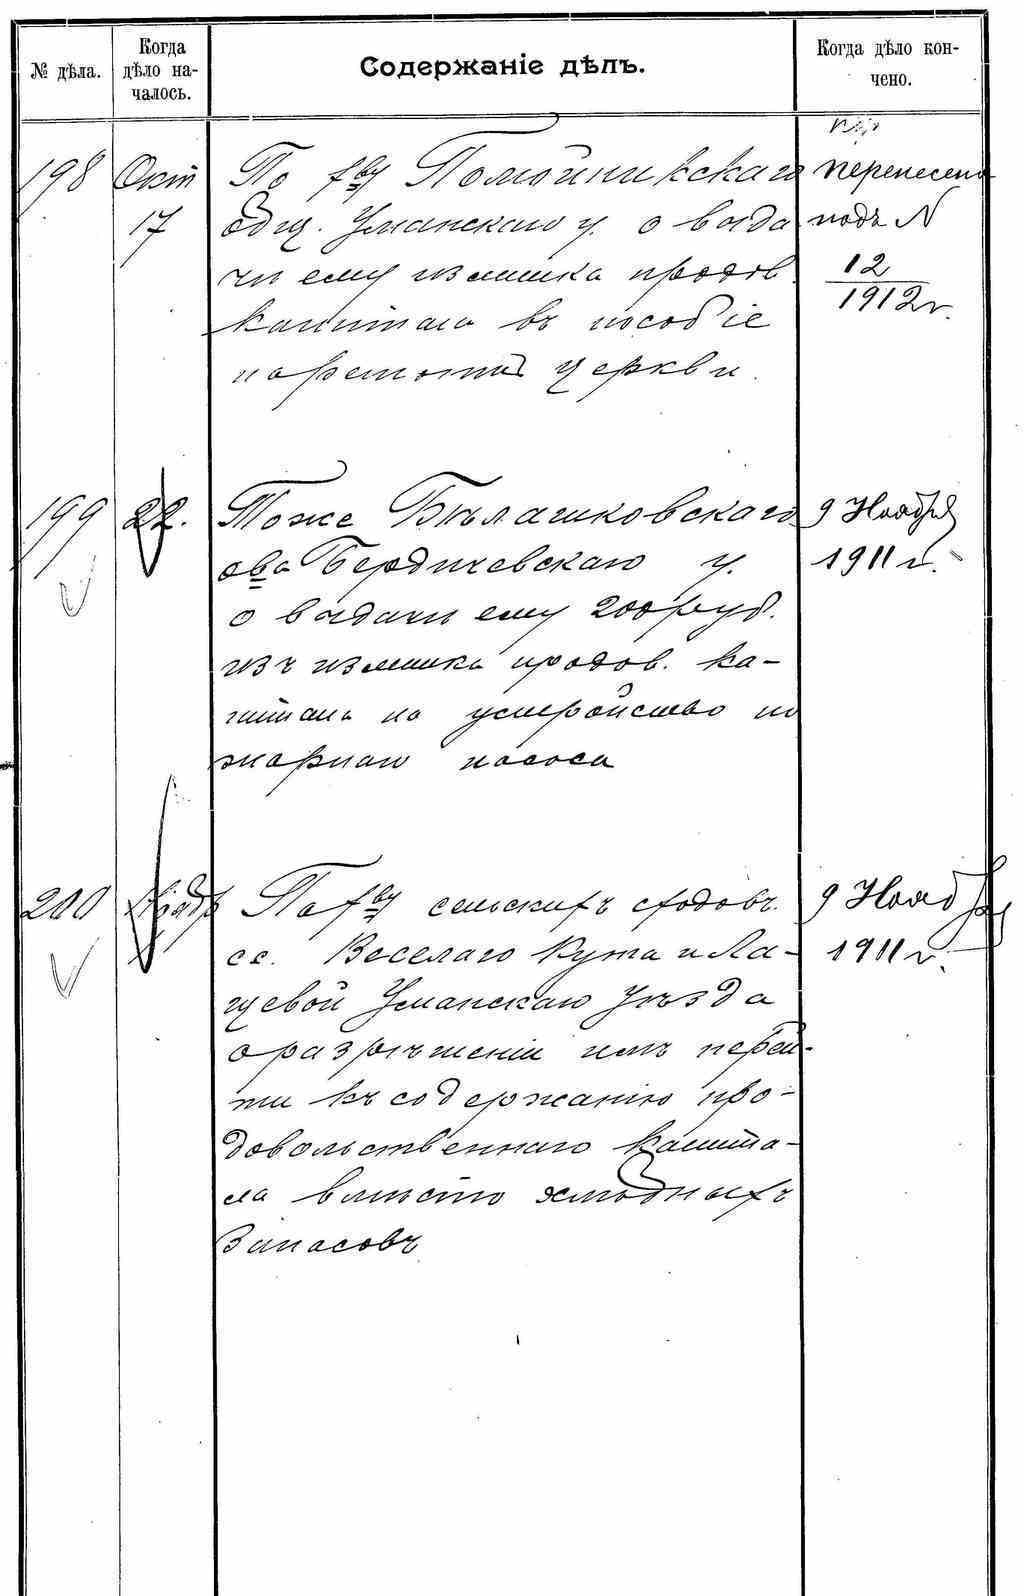 № дѣла.
Когда
дѣло на-
чалось.
Содержаніе дѣлъ.
Когда дѣло кон-
чено.
198
Окт
17
По хву Помойникскаго
общ. Уманскаго у. о выда
чи ему излишка продов
капитала въ пособіе
на ремонтъ церкви.
перенесено
подъ N
12
1912 г.
199
22.
Тоже Бѣлашковскаго
о-ва Бердичевскаго у.
о выдачи ему 200 руб.
изъ излишка продов. ка-
питала на устройство по
жарнаго насоса
9 Ноября
1911 г.
200
Ноябр
По хву сельскихъ сходовъ
сс. Веселаго Кута и Ла-
щевой Уманскаго Уѣзда
о разрѣшеніи имъ перей-
ти къ содержанію про-
довольственнаго капита-
ла вмѣсто хлѣбныхъ
Запасовъ
9 Ноября
1911 г.